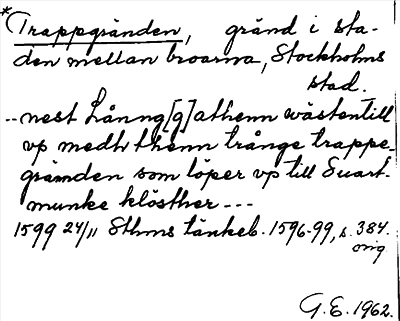 * Trappgränden, gränd i sta-
den mellan broarna, Stockholms
stad.
--nest Lånng[g]athenn wästentill
vp medh thenn trånge trappe-
gränden som löper vp till Suart-
munke klösther ---
1599 24/11 Sthms tänkeb. 1596-99, s. 384.
orig.
G.E. 1962.